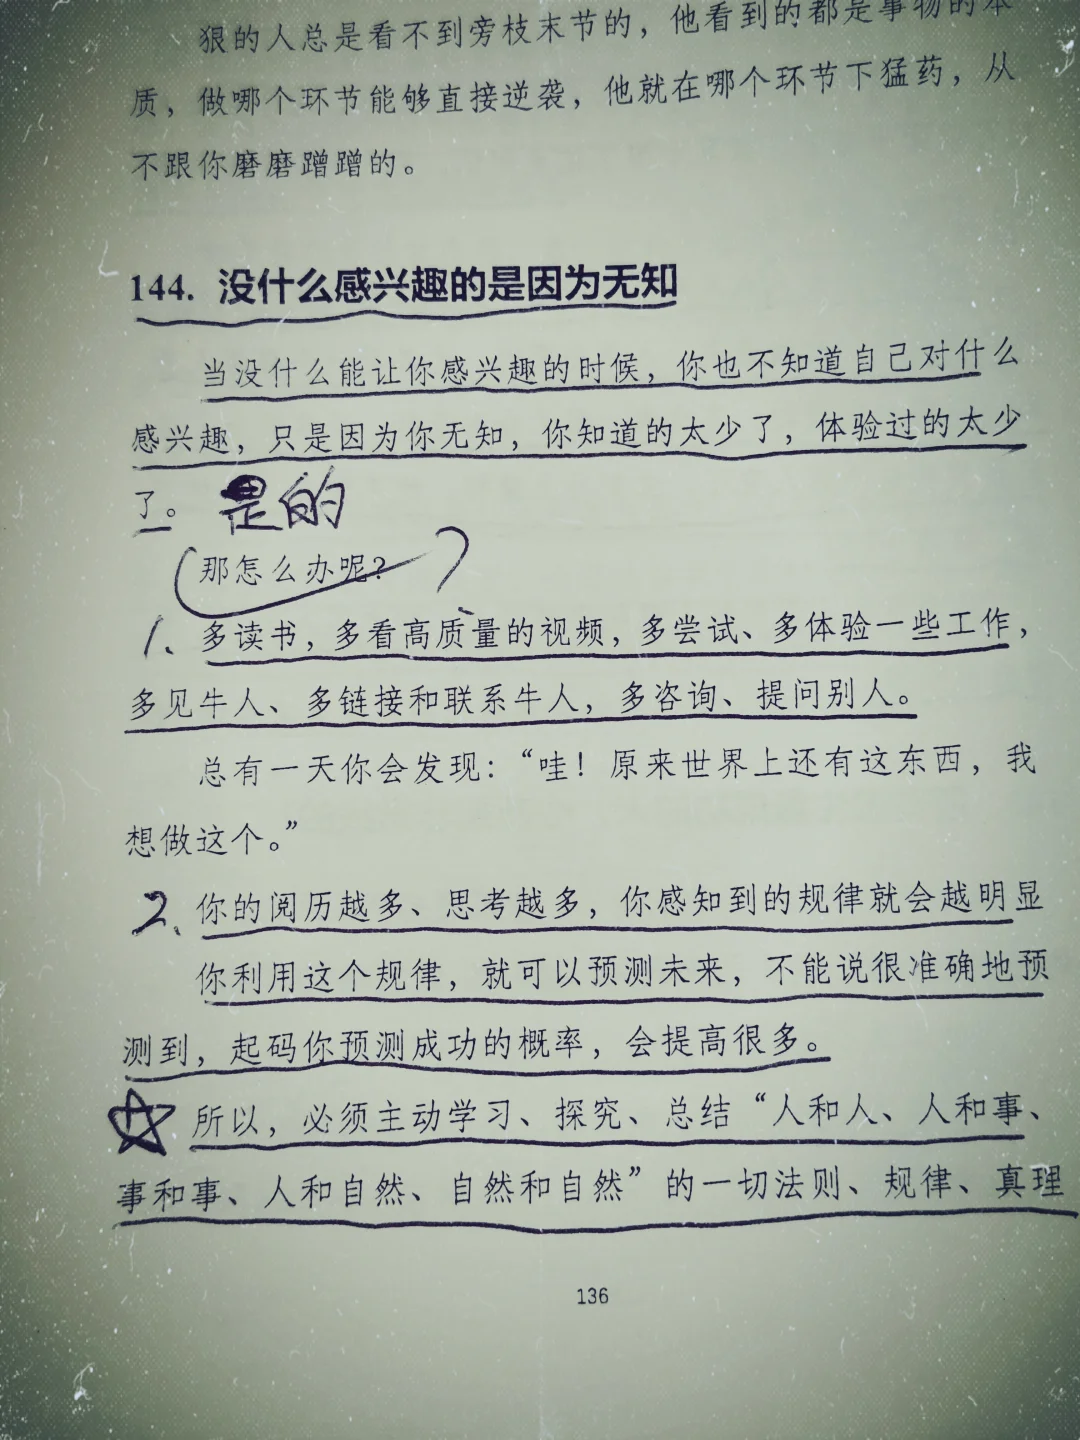 狠的人总是看不到旁枝末节的，他看到的都是事物的本
质，做哪个环节能够直接逆袭，他就在哪个环节下猛药，从
不跟你磨磨蹭蹭的。
144. 没什么感兴趣的是因为无知
当没什么能让你感兴趣的时候，你也不知道自己对什么
感兴趣，只是因为你无知，你知道的太少了，体验过的太少
了。 是的
（那怎么办呢？
1、多读书，多看高质量的视频，多尝试、多体验一些工作，
多见牛人、多链接和联系牛人，多咨询、提问别人。
总有一天你会发现：“哇！原来世界上还有这东西，我
想做这个。”
2、你的阅历越多、思考越多，你感知到的规律就会越明显
你利用这个规律，就可以预测未来，不能说很准确地预
测到，起码你预测成功的概率，会提高很多。
所以，必须主动学习、探究、总结“人和人、人和事、
事和事、人和自然、自然和自然”的一切法则、规律、真理
136